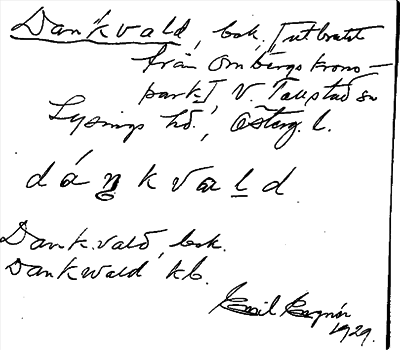 Dankvald, bok, Tutbratt
från Ombergs krono-
park I V. Tollstad sn
Lysings hd, Österg. l.
dáŋkvald
Dank.vald, bok.
Dankwald kb.
Emil
1929.